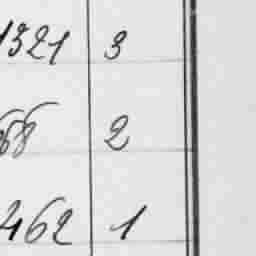 1321 3
68 2
462 1